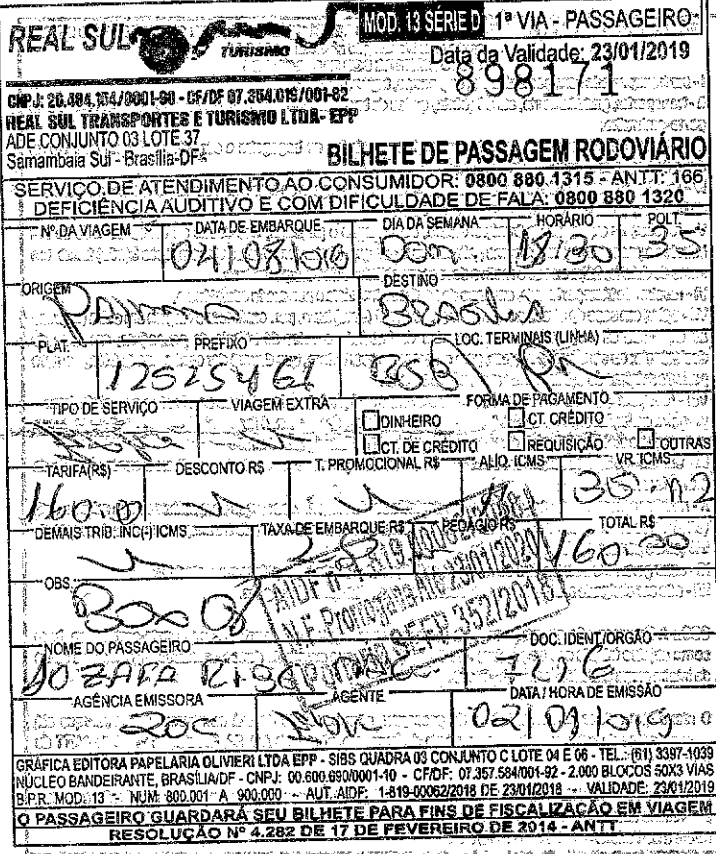 REAL SUL TURISMO
MOD. 13 SÉRIE D 1ª VIA - PASSAGEIRO
Data da Validade: 23/01/2019
898171
CNPJ: 20.484.154/0001-90 - CF/DF 07.354.019/001-82
REAL SUL TRANSPORTES E TURISMO LTDA- EPP
ADE CONJUNTO 03 LOTE 37
Samambaia Sul - Brasília-DF
BILHETE DE PASSAGEM RODOVIÁRIO
SERVIÇO DE ATENDIMENTO AO CONSUMIDOR: 0800 880 1315 - ANTT: 166
DEFICIÊNCIA AUDITIVO E COM DIFICULDADE DE FALA: 0800 880 1320
Nº DA VIAGEM DATA DE EMBARQUE DIA DA SEMANA HORÁRIO POLT.
04/08/ Dom 18:30 35
ORIGEM DESTINO
PLAT. PREFIXO LOC. TERMINAIS (LINHA)
12525461 BSB/
TIPO DE SERVIÇO VIAGEM EXTRA FORMA DE PAGAMENTO
DINHEIRO CT. CRÉDITO
CT. DE CRÉDITO REQUISIÇÃO OUTRAS
TARIFA(R$) DESCONTO R$ T. PROMOCIONAL R$ ALIQ. ICMS VR. ICMS
160.00
DEMAIS TRIB. INC(-) ICMS TAXA DE EMBARQUE R$ PEDÁGIO R$ TOTAL R$
160.00
OBS.
N.F. Prorrogada Até 23/01/2020
SEFP 352/2018
NOME DO PASSAGEIRO DOC. IDENT/ORGÃO
AGÊNCIA EMISSORA AGENTE DATA / HORA DE EMISSÃO
GRÁFICA EDITORA PAPELARIA OLIVIERI LTDA EPP - SIBS QUADRA 03 CONJUNTO C LOTE 04 E 06 - TEL.: (61) 3397-1039
NÚCLEO BANDEIRANTE, BRASÍLIA/DF - CNPJ: 00.600.690/0001-10 - CF/DF: 07.357.584/001-92 - 2.000 BLOCOS 50X3 VIAS
B.P.R. MOD: 13 - NUM: 800.001 A 900.000 - AUT. AIDF: 1-819-00062/2018 DE 23/01/2018 - VALIDADE: 23/01/2019
O PASSAGEIRO GUARDARÁ SEU BILHETE PARA FINS DE FISCALIZAÇÃO EM VIAGEM
RESOLUÇÃO Nº 4.282 DE 17 DE FEVEREIRO DE 2014 - ANTT